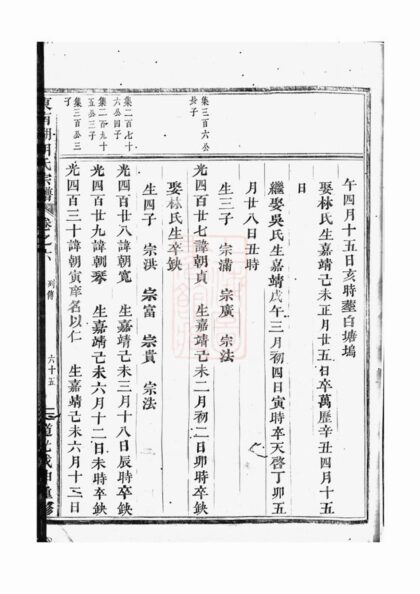 午四月十五日亥時塟白塘塢
娶林氏生嘉靖己未正月廿五日卒萬歷辛丑四月十五
日
繼娶吳氏生嘉靖戊午三月初四日寅時卒天啓丁卯五
月廿八日丑時
生三子 宗蒲 宗廣 宗法
集三百六公
長子
光四百廿七諱朝貞 生嘉靖己未二月初二日卯時卒缺
娶林氏生卒缺
生四子 宗洪 宗富 宗貴 宗法
集二百七十
六公四子
光四百廿八諱朝寬 生嘉靖己未三月十八日辰時卒缺
集二百九十
五公三子
光四百廿九諱朝琴 生嘉靖己未六月十二日未時卒缺
集三百公三
子
光四百三十諱朝寅庠名以仁 生嘉靖己未六月十三日
東南湖胡氏宗譜 卷之六 列傳 六十五 道光戊申重修